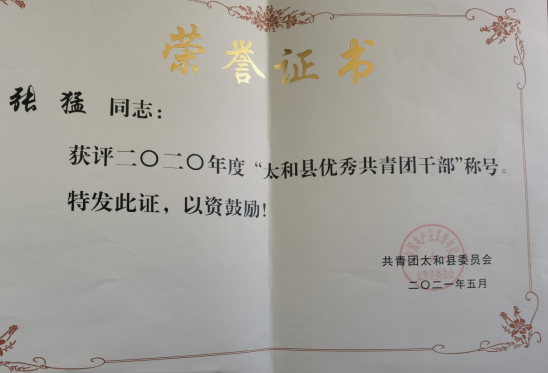 荣誉证书
张猛 同志：
获评二〇二〇年度“太和县优秀共青团干部”称号。
特发此证，以资鼓励！
共青团太和县委员会
二〇二一年五月